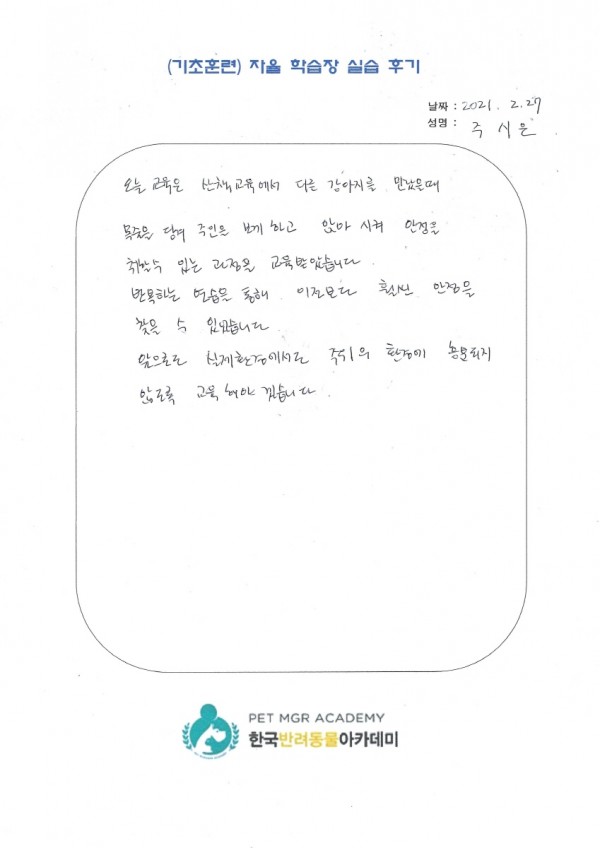 (기초훈련) 자율 학습장 실습 후기
날짜 : 2021. 2.27
성명 : 주시은
오늘 교육은 산책교육에서 다른 강아지를 만났을때
목줄을 당겨 주인을 보게 하고 앉아 시켜 안정을
취할수 있는 과정을 교육받았습니다.
반복하는 연습을 통해 이전보다 훨씬 안정을
찾을 수 있었습니다.
앞으로도 실제환경에서도 주위의 환경에 흥분되지
않도록 교육해야 겠습니다.
PET MGR ACADEMY
한국반려동물아카데미